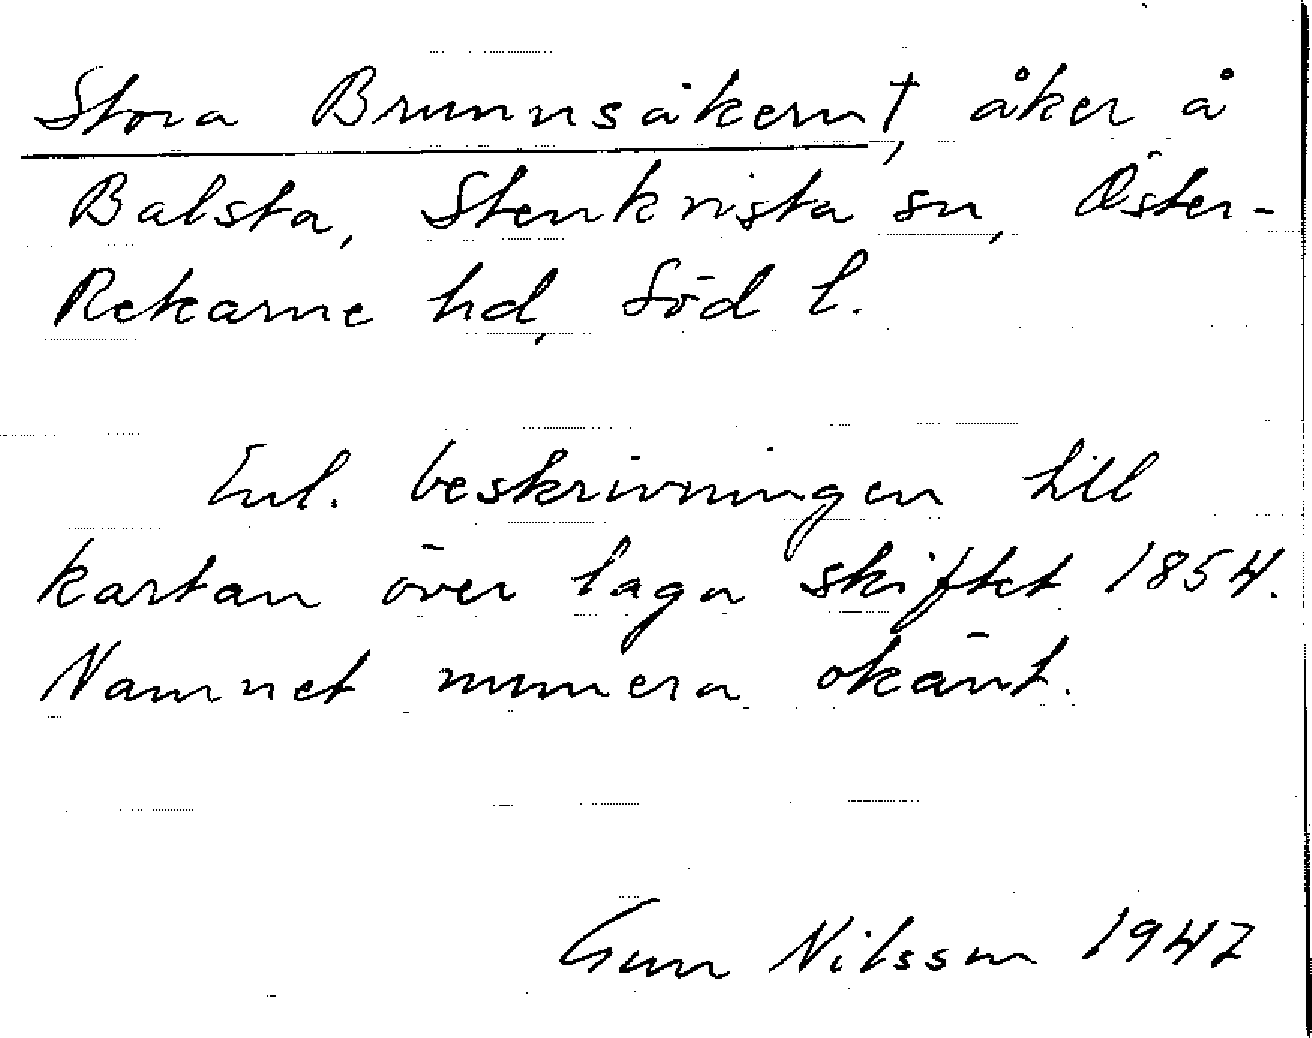 Stora Brunnsåkern†, åker å
Balsta, Stenkvista sn, Öster-
Rekarne hd, Söd l.
Enl. beskrivningen till
kartan över laga skiftet 1854.
Namnet numera okänt.
Gun Nilsson 1947